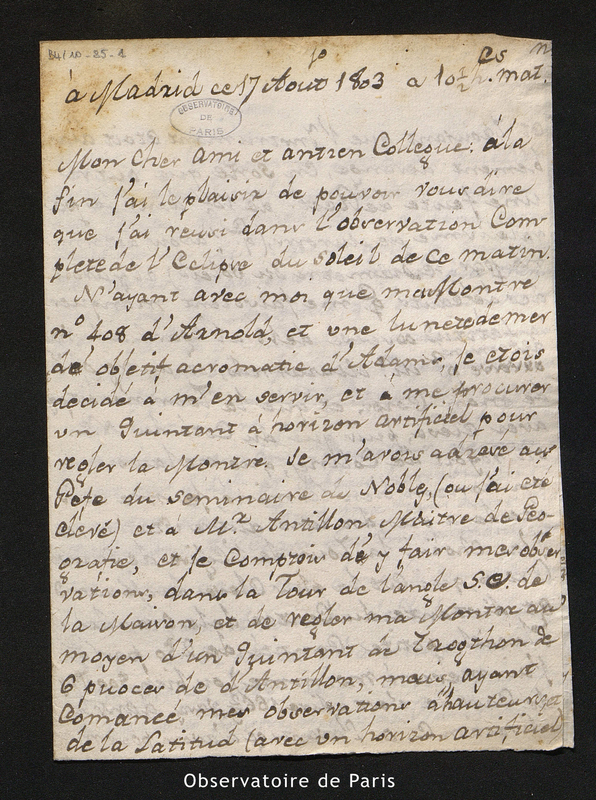 B4/10-25-1
à Madrid ce 17 Aout 1803 a 10 ½ h.es mat.n
OBSERVATOIRE
DE
PARIS
Mon Cher ami et antien Collegue: à la
fin j'ai le plaisir de pouvoir vous dire
que j'ai réusi dans l'observation Com-
plete de l'Eclipse du Soleil de ce matin.
N'ayant avec moi que ma Montre
nº 408 d'Arnold, et une lunete de mer
de objetif acromatic d'Adams, Je etois
decidé à m'en servir, et à me procurer
un Quintant à horizon artificiel pour
regler la Montre. Je m'avois adresé aus
Pefe du Seminaire de Nobles, (ou j'ai été
elevé) et a M.r Antillon Maitre de Geo-
grafie, et Je Comptois de y fair mes obser-
vations, dans la Tour de l'angle S.e. de
la Maison, et de regler ma Montre au
moyen d'un Quintant de Trogthon de
6 puoces de d'Antillon, mais ayant
Comancé mes observations d'hauteurs et
de la Latitud (avec un horizon artificiel
Observatoire de Paris